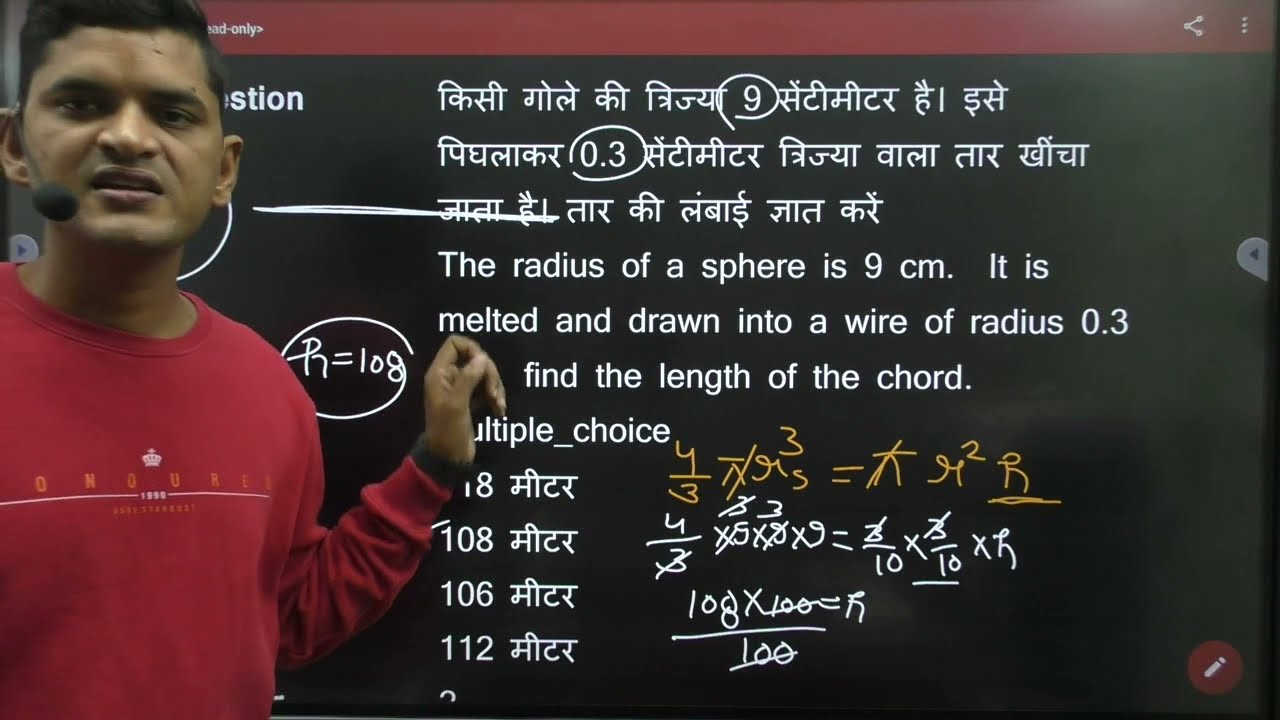 ead-only>
estion
किसी गोले की त्रिज्या 9 सेंटीमीटर है। इसे
पिघलाकर 0.3 सेंटीमीटर त्रिज्या वाला तार खींचा
जाता है। तार की लंबाई ज्ञात करें
The radius of a sphere is 9 cm. It is
melted and drawn into a wire of radius 0.3
find the length of the chord.
ultiple_choice
18 मीटर
108 मीटर
106 मीटर
112 मीटर
h=108
4/3 πr³s = π r² h
4/3 ×9×9×9 = 3/10 × 3/10 × h
108×100 = h
100
ONOURED
1990